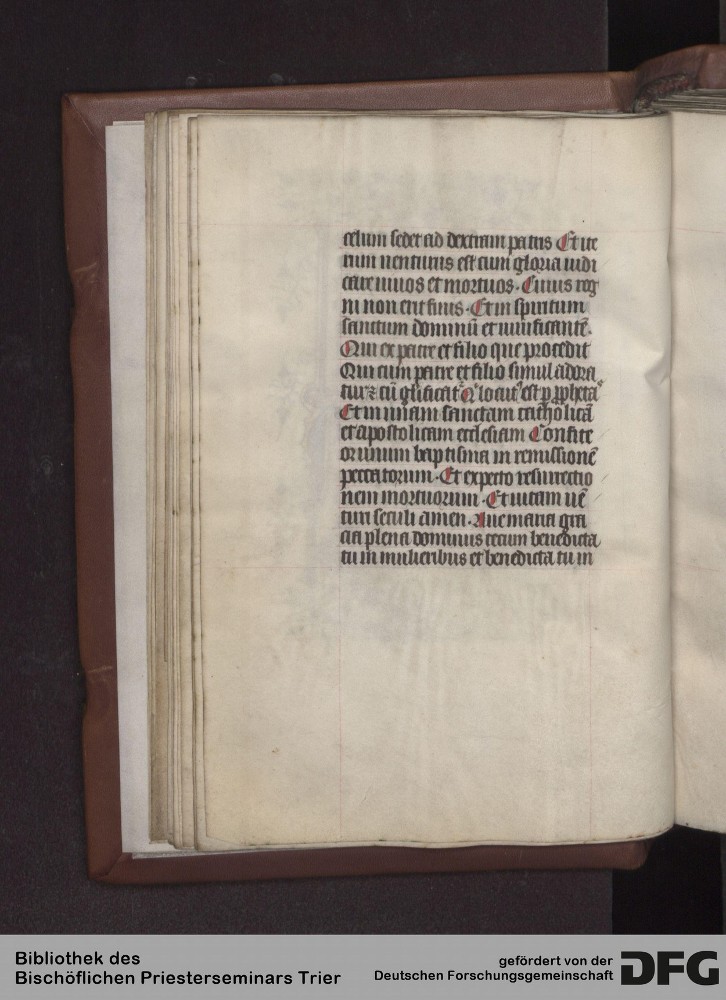 celum sedet ad dextram patris Et ite
rum uenturus est cum gloria iudi
care uiuos et mortuos. Cuius reg
ni non erit finis. Et in spiritum
sanctum dominū et uiuificantē.
Qui ex patre et filio que procedit
Qui cum patre et filio simul adora
tur ⁊ cū glificat᷒ Q͛ locut᷒ est ꝑ ꝓphetas
Et in unam sanctam catholicā
et apostolicam ecclesiam Confite
or unum baptisma in remissionē
peccatorum. Et expecto resurrectio
nem mortuorum. Et uitam uē
turi seculi amen. Aue maria gra
cia plena dominus tecum benedicta
tu in mulieribus et benedicta tu in
Bibliothek des
Bischöflichen Priesterseminars Trier
gefördert von der
Deutschen Forschungsgemeinschaft
DFG